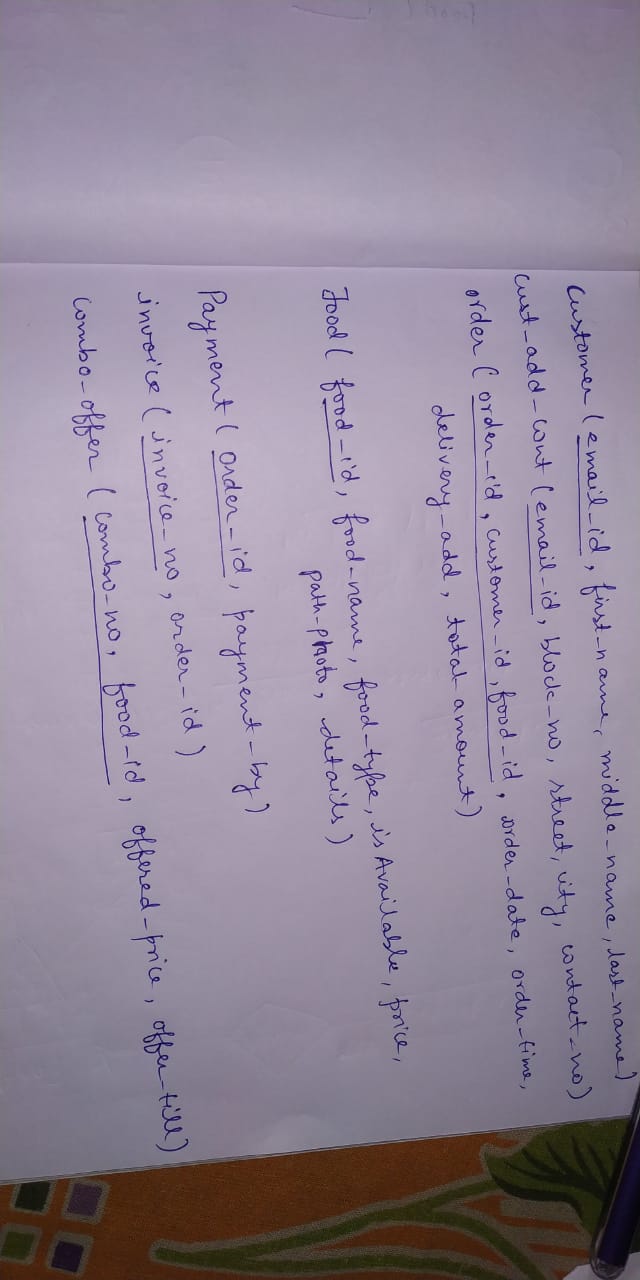 Customer ( email_id, first_name, middle_name, last_name)
cust_add_cont ( email_id, block_no, street, city, contact_no)
order ( order_id, customer_id, food_id, order_date, order_time,
delivery_add, total amount)
Food ( food_id, food_name, food_type, is Available, price,
path_photo, details)
Payment ( order_id, payment_by)
invoice ( invoice_no, order_id)
combo_offer ( combo_no, food_id, offered_price, offer_till)